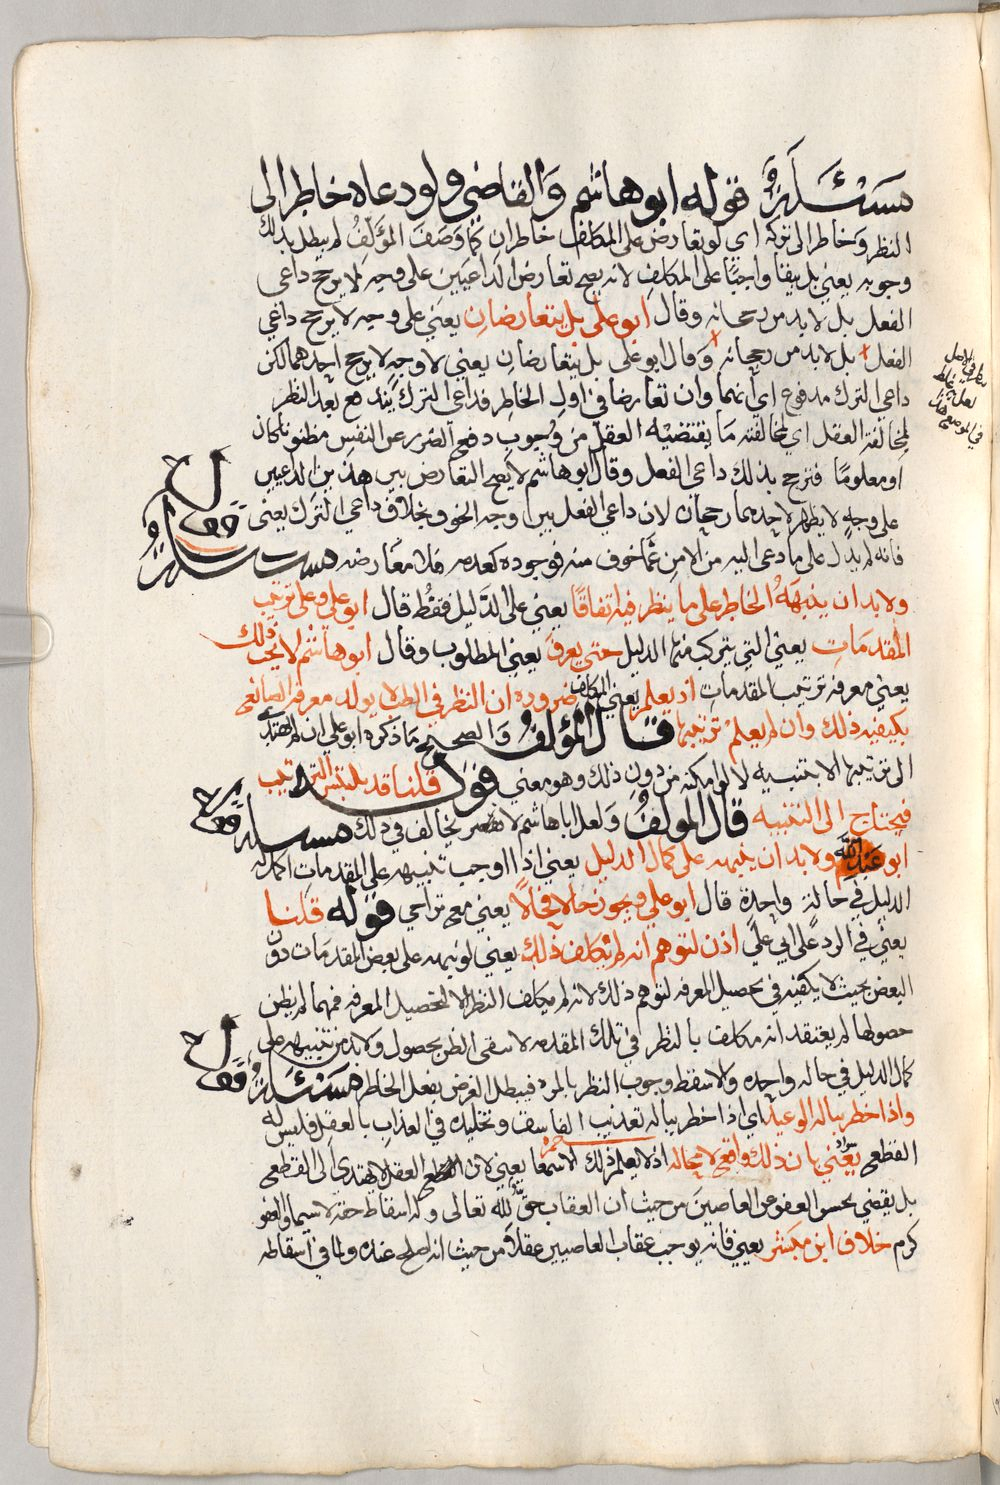 مسئلة قوله ابو هاشم والقاضي ولو دعاه خاطر الى
النظر وخاطر الى تركه اي لو تعارض على المكلف خاطران كما وصف المؤلف لم يبطل بذلك
وجوبه يعني بل يبقا واجبًا على المكلف لانه يصح تعارض الداعيين على وجه لا يرجح داعي
الفعل بل لا بد من رجحانه وقال ابو علي بل يتعارضان يعني على وجه لا يرجح داعي
الفعل بل لا بد من رجحانه وقال ابو علي بل يتعارضان يعني لا وجه لا يرجح احدهما لكن
داعي الترك مدفوع اي انهما وان تعارضا في اول الخاطر فداعي الترك يندفع بعد النظر
لمخالفته العقل اي لمخالفته ما يقتضيه العقل من وجوب دفع الضرر عن النفس مظنونا كان
او معلومًا فترجح بذلك داعي الفعل وقال ابو هاشم لا يصح التعارض بين هذين الداعيين
على وجه لا يظهر لاحدهما رجحان لان داعي الفعل بين اوجه الخوف بخلاف داعي الترك يعني
فانه لم يدل على ما دعى اليه من الامن عما خوف منه فوجوده كعدمه فلا معارضه مسئلة قوله
ولا بد ان ينبهه الخاطر على ما ينظر فيه اتفاقًا يعني على الدليل فقط قال ابو علي وعلى ترتيب
المقدمات يعني التي يتركب منها الدليل حتى يعرف يعني المطلوب وقال ابو هاشم لا يجب ذلك
يعني معرفة ترتيب المقدمات اذ يعلم يعني المكلف ضرورة ان النظر في الطب لا يولد معرفة الصانع
بكيفيه ذلك وان لم يعلم ترتيبها قال المؤلف والصحيح ما ذكره ابو علي ان لم يهتد
الى ترتيبها الا بتنبيه لا لو امكنه من دون ذلك وهو معني قوله قلنا قد يلتبس الترتيب
فيحتاج الى التنبيه قال المؤلف ولعل ابا هاشم لا يخالف في ذلك مسئلة قوله
ابو عبد الله ولا بد ان ينبهه على كمال الدليل يعني اذا اوجب تنبيهه على المقدمات اكمل له
الدليل في حالة واحدة قال ابو علي ويجوز حالًا فحالًا يعني مع تراخي قوله قلنا
يعني في الرد على ابي علي اذن لتوهم انه لم يكلف ذلك يعني لو نبهه على بعض المقدمات دون
البعض بحيث لا يكفيه في تحصيل المعرفه لتوهم ذلك لانه لم يكلف النظر الا لتحصيل المعرفه فمهما لم يظن
حصولها لم يعتقد انه مكلف بالنظر في تلك المقدمه لا سقى الظن بحصول ولا بد من تنبيهه على
كمال الدليل في حاله واحده ولا سقط وجوب النظر بالمره فيبطل الغرض بفعل الخاطر مسئلة قوله
واذا خطر بباله الوعيد اي اذا خطر بباله تعذيب الفاسق وتخليده في العذاب بالعقل فليس له
القطع يعني بان ذلك واقع لا محاله اذ لا يعلم ذلك الا سمعا يعني لان العقل لا يهتدي الى القطع
بل يقضي بحسن العفو عن العاصين من حيث ان العقاب حق لله تعالى وله اسقاط حقه لا سيما والعفو
كرم خلاف ابن مبشر يعني فانه يوجب عقاب العاصيين عقلًا من حيث انه اصلح عنده ولما في اسقاطه